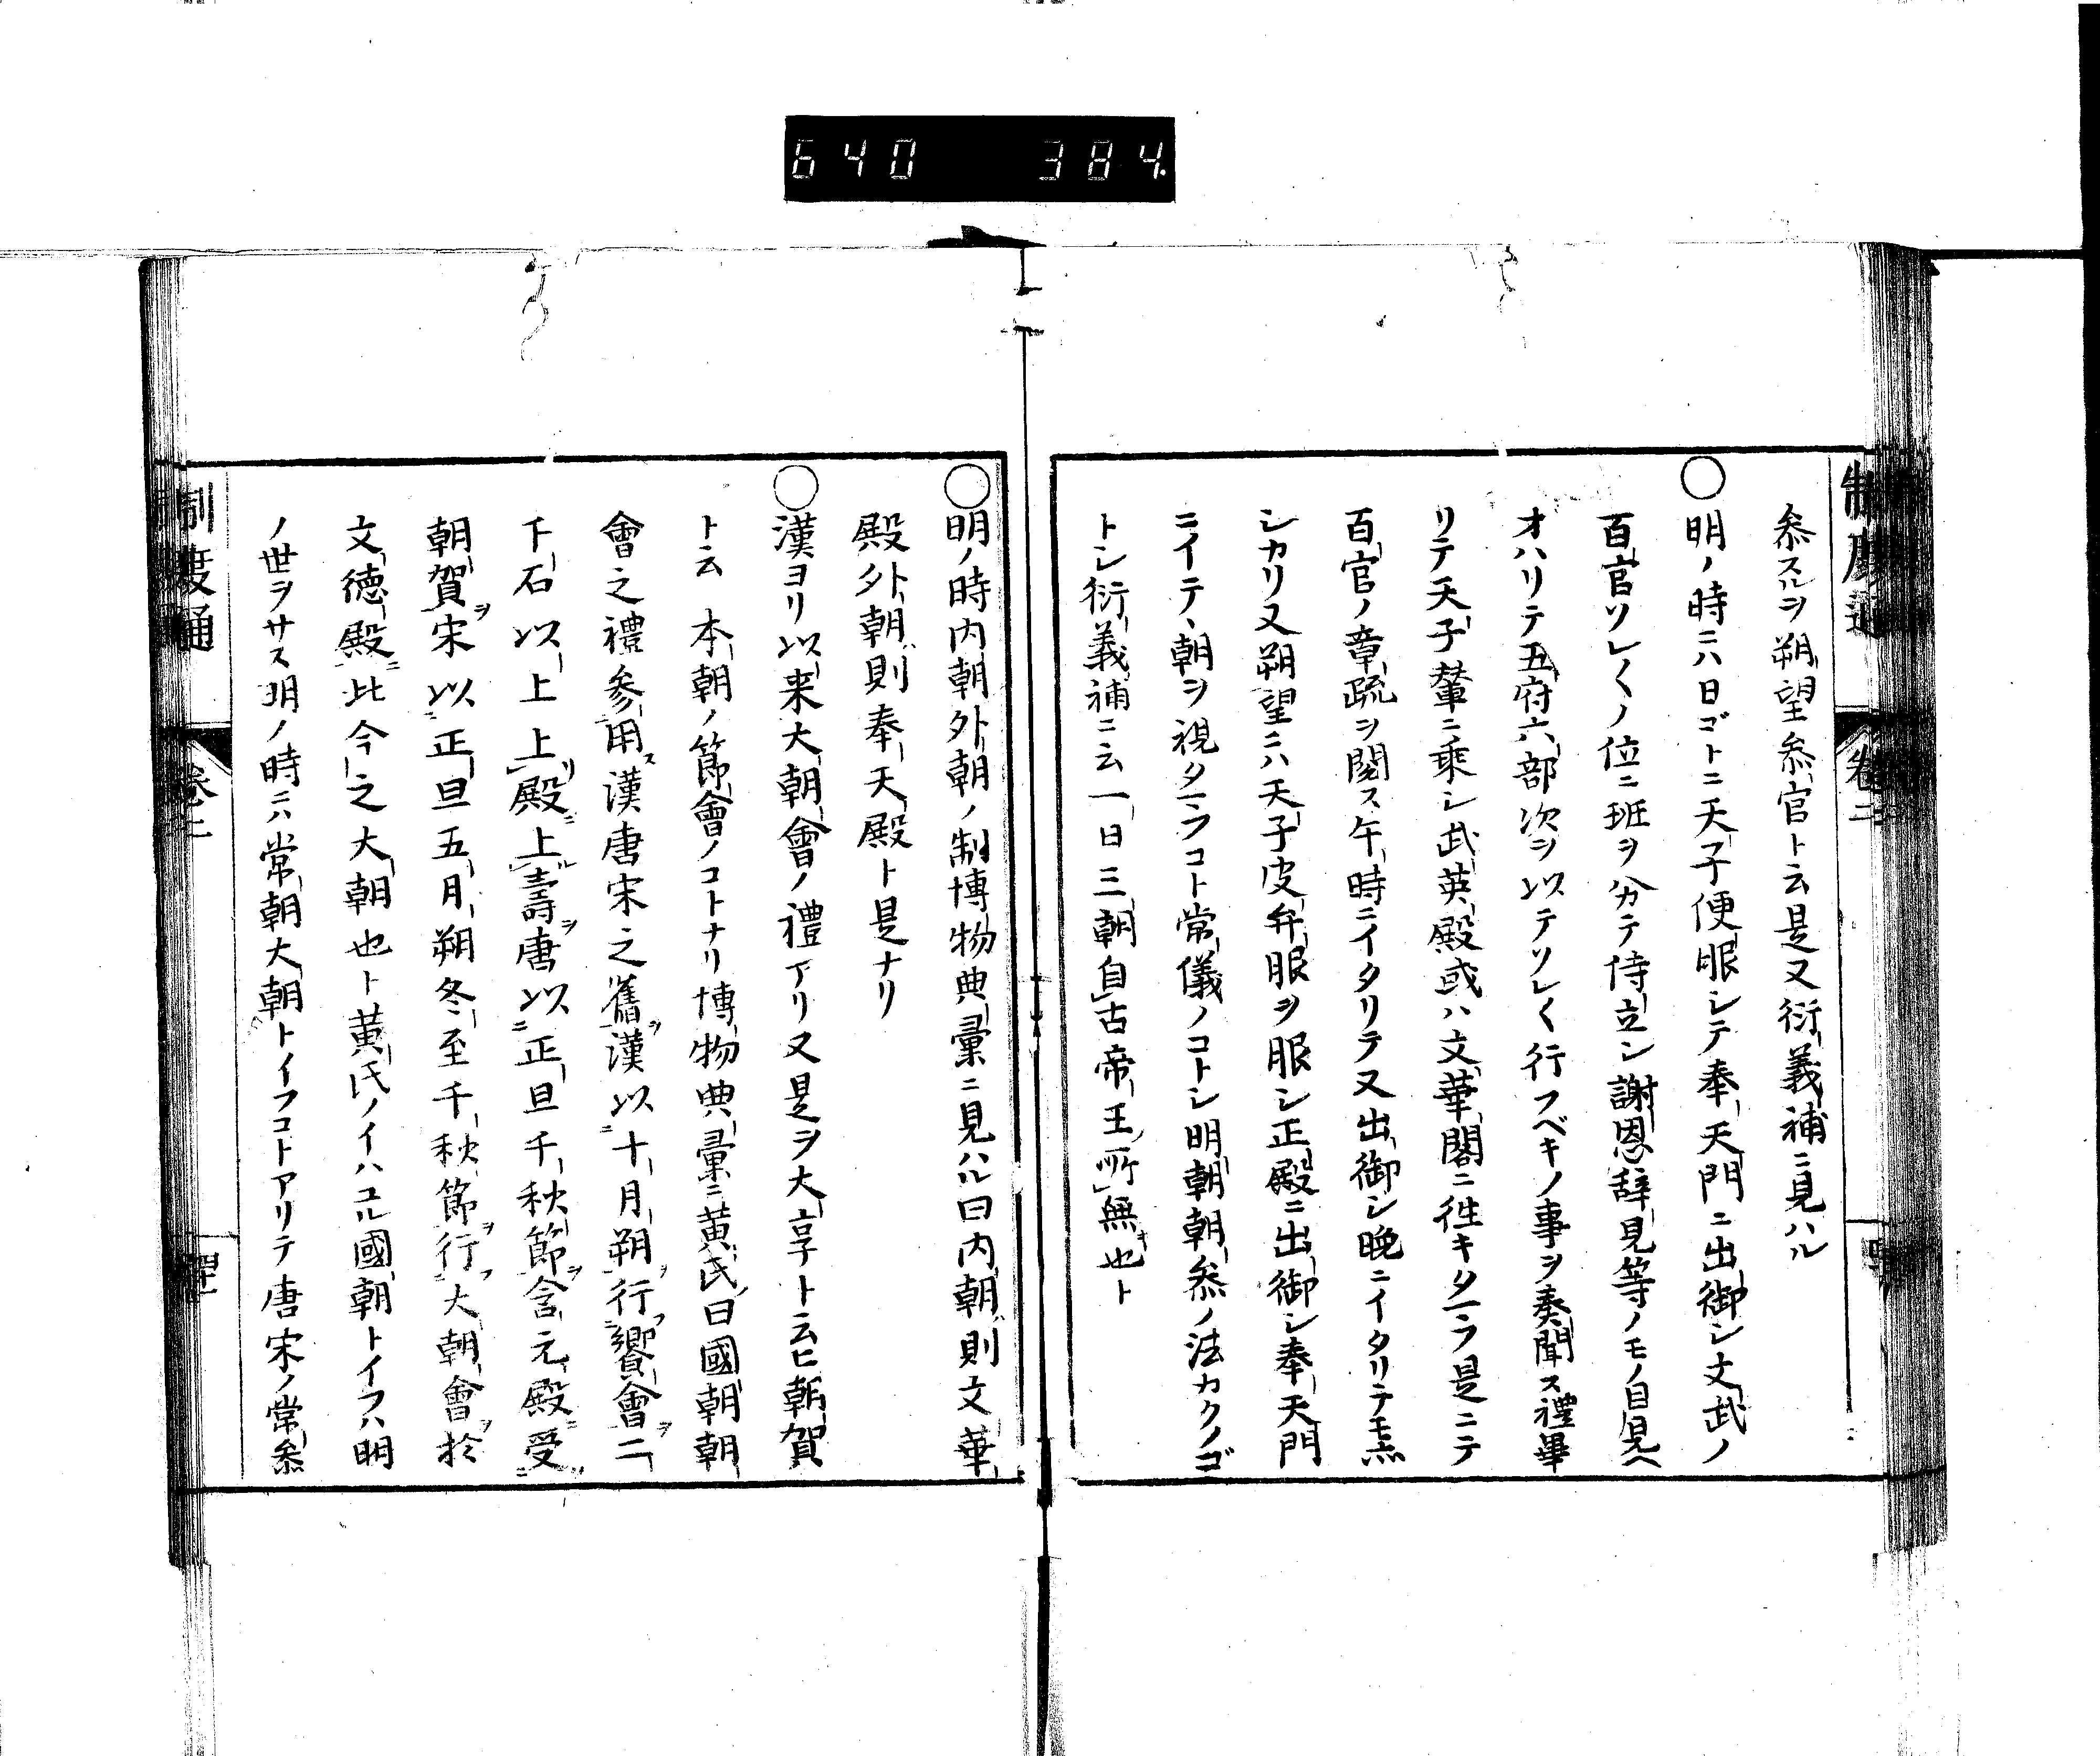 640 384.
制度通 卷二
叅スルヲ朔望叅官ト云是又衍義補ニ見ハル
○明ノ時ニハ日ゴトニ天子便服シテ奉天門ニ出御シ文武ノ
百官ソレ〱ノ位ニ班ヲ分テ侍立シ謝恩辞見等ノモノ目見ヘ
オハリテ五府六部次ヲ以テソレ〱行フベキノ事ヲ奏聞ス禮畢
リテ天子輦ニ乗シ武英殿或ハ文華閣ニ徃キタマフ是ニテ
百官ノ章疏ヲ閲ス午時ニイタリテ又出御シ晩ニイタリテモ亦
シカリ又朔望ニハ天子皮弁服ヲ服シ正殿ニ出御シ奉天門
ニイテヽ朝ヲ視タマフコト常儀ノコトシ明朝朝叅ノ法カクノゴ
トシ衍義補ニ云一日三朝自古帝王所無也ト
○明ノ時内朝外朝ノ制博物典彙ニ見ハル曰内朝則文華
殿外朝則奉天殿ト是ナリ
○漢ヨリ以来大朝會ノ禮アリ又是ヲ大享ト云ヒ朝賀
ト云 本朝ノ節會ノコトナリ博物典彙ニ黄氏曰國朝朝
會之禮参用漢唐宋之舊漢以十月朔行饗會二
千石以上上殿上壽唐以正旦千秋節含元殿受
朝賀宋以正旦五月朔冬至千秋節行大朝會於
文德殿比今之大朝也ト黄氏ノイハユル國朝トイフハ明
ノ世ヲサス明ノ時ニハ常朝大朝トイフコトアリテ唐宋ノ常叅
制度通 卷二